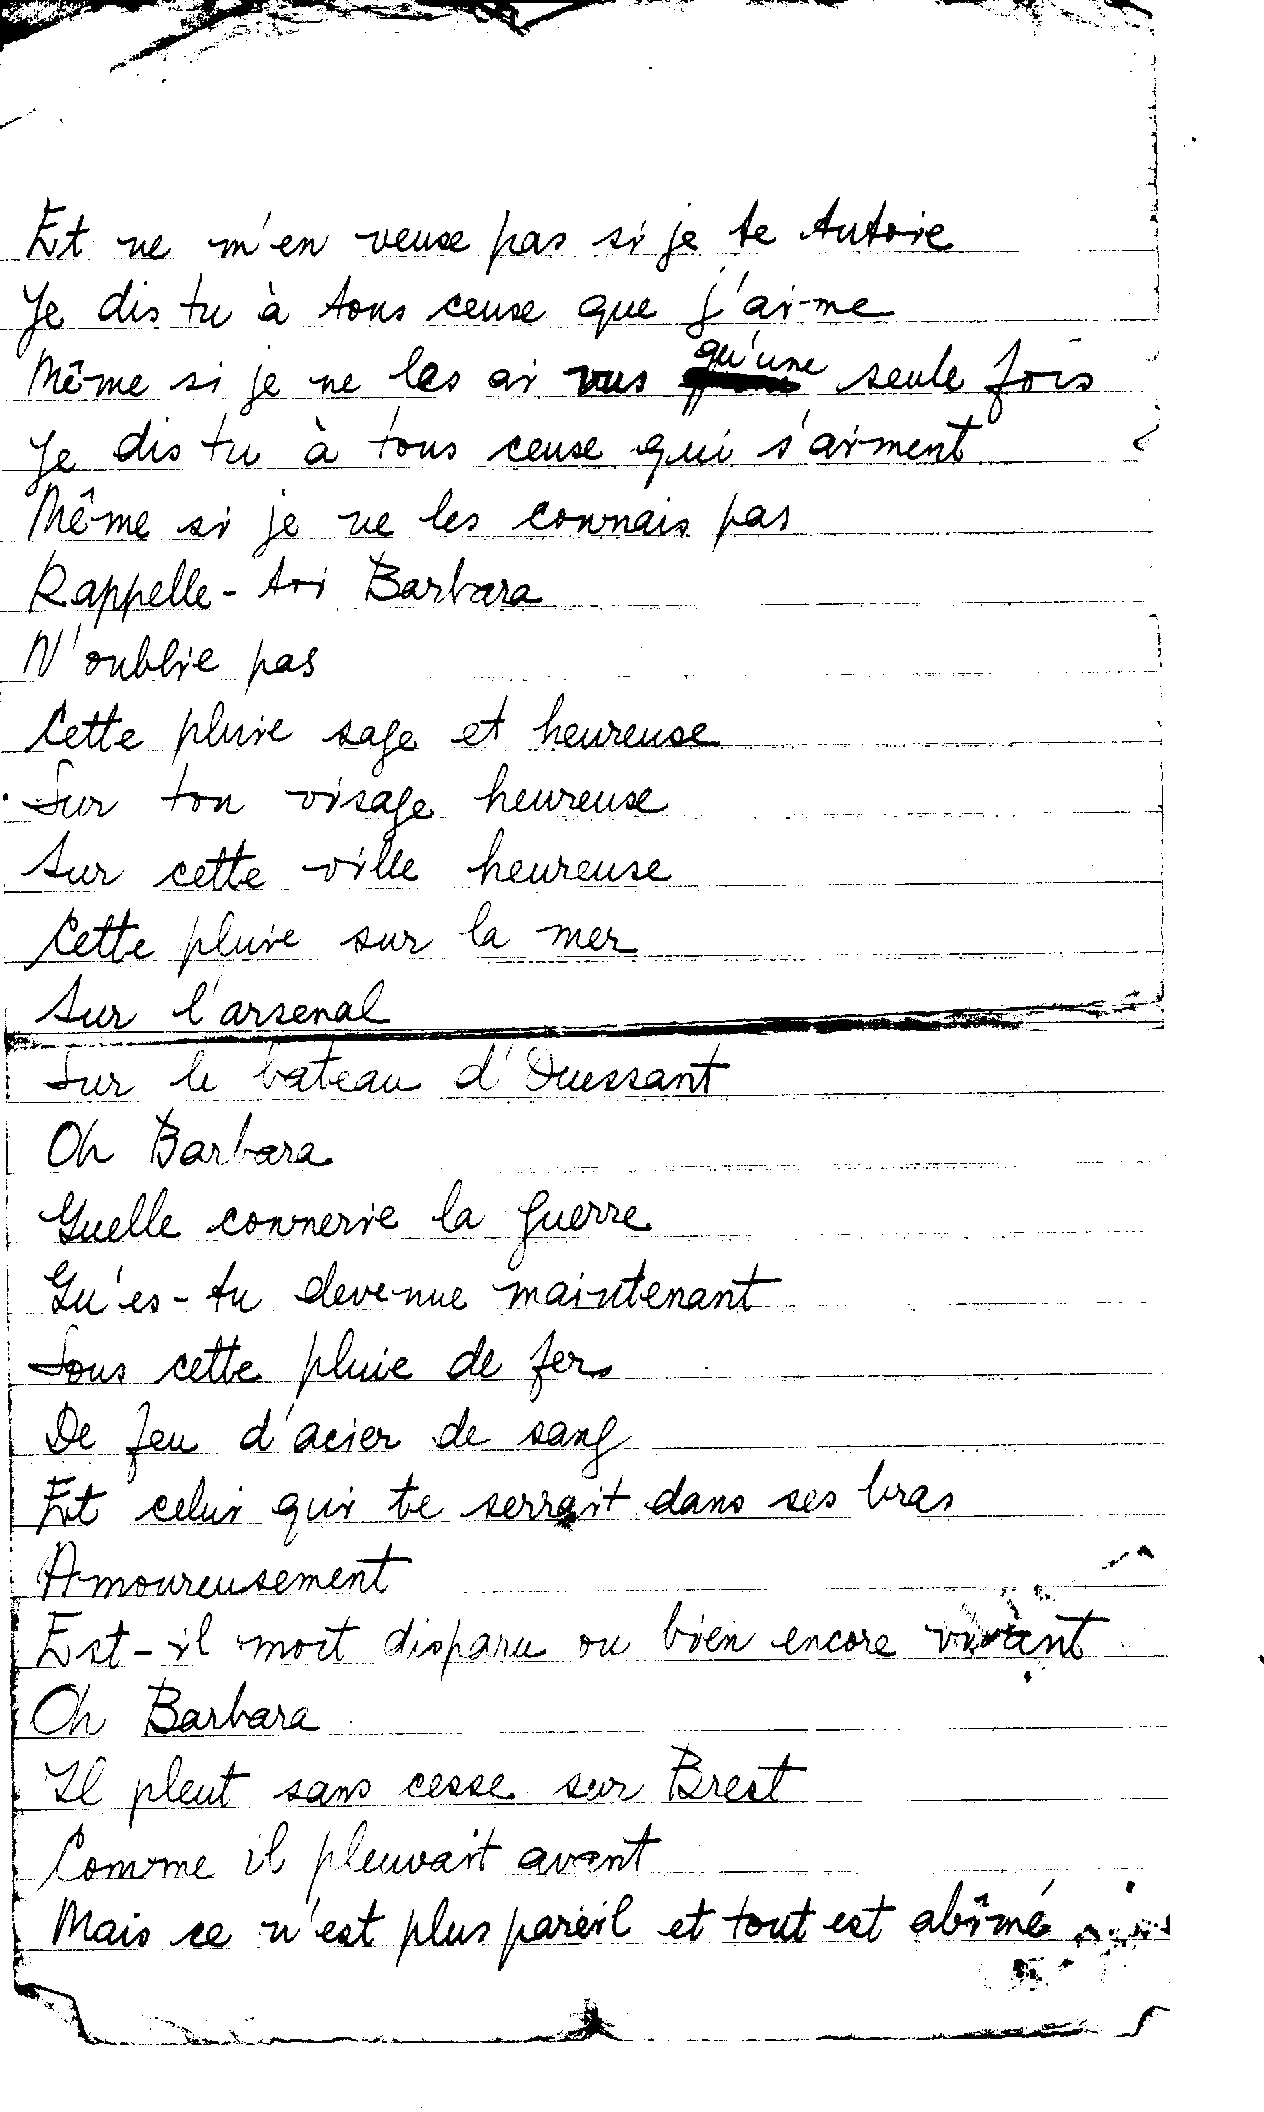 Et ne m'en veux pas si je te tutoie
Je dis tu à tous ceux que j'aime
Même si je ne les ai vus qu'une seule fois
Je dis tu à tous ceux qui s'aiment
Même si je ne les connais pas
Rappelle-toi Barbara
N'oublie pas
Cette pluie sage et heureuse
Sur ton visage heureuse
Sur cette ville heureuse
Cette pluie sur la mer
Sur l'arsenal
Sur le bateau d'Ouessant
Oh Barbara
Quelle connerie la guerre
Qu'es-tu devenue maintenant
Sous cette pluie de fer
De feu d'acier de sang
Et celui qui te serrait dans ses bras
Amoureusement
Est-il mort disparu ou bien encore vivant
Oh Barbara
Il pleut sans cesse sur Brest
Comme il pleuvait avant
Mais ce n'est plus pareil et tout est abîmé